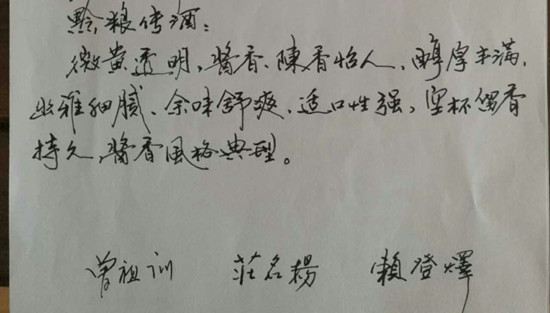 黔粮传酒：
微黄透明，酱香、陳香怡人、醇厚丰满、
幽雅细腻、余味舒爽、适口性强，空杯留香
持久，酱香風格典型。
曾祖训 莊名揚 賴登燡